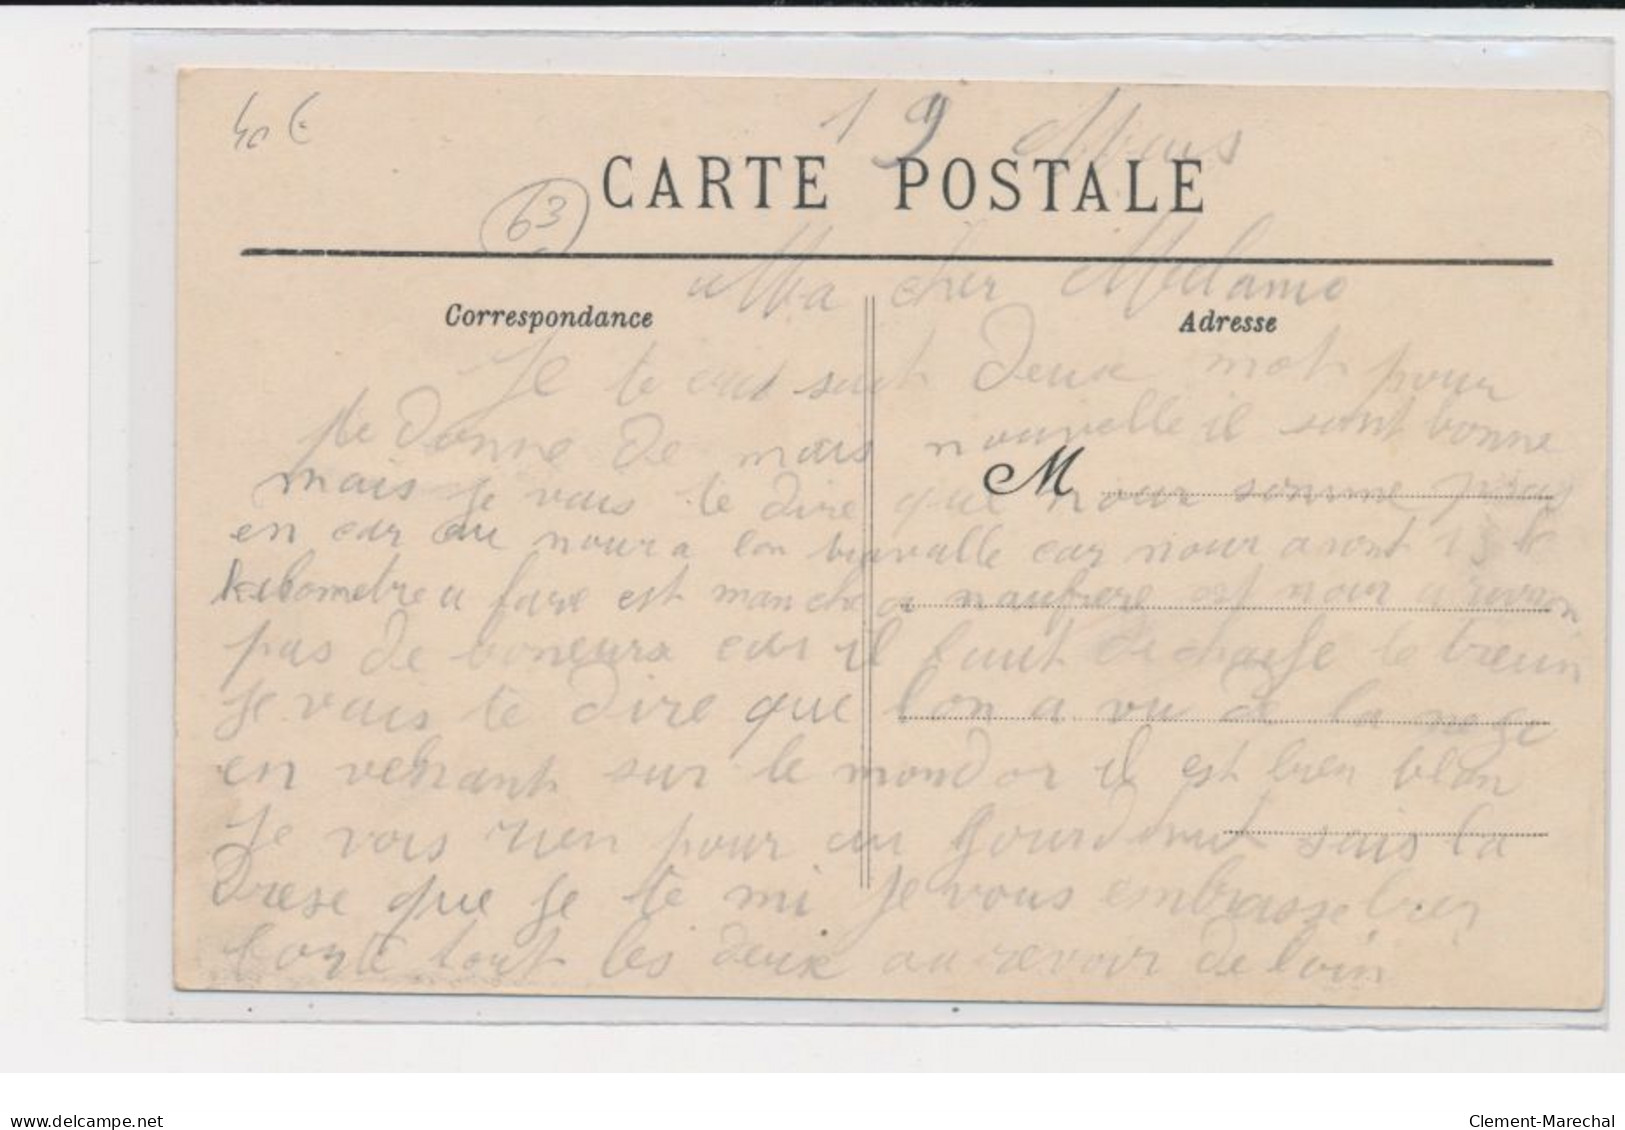 40 €
19 Mars
CARTE POSTALE
63
Ma cher Melanie
Correspondance
Adresse
Je te sait deux mot pour
te donne de mais nouvelle il sont bonne
M
mais je vais te dire que nour somme pas
en car ou nour a lon travalle car nour avont 13
kilometre a fare est manche a est nour avon
pas de boneura car il faut de le
Je vais te dire que lon a vu de la nege
en venant sur le mondor il est bien blan
Je vois rien pour au gourdenut sais la
drese que je te mi Je vous embrasse bien
tout les deux au revoir de loin
delcampe.net
Clement-Marechal